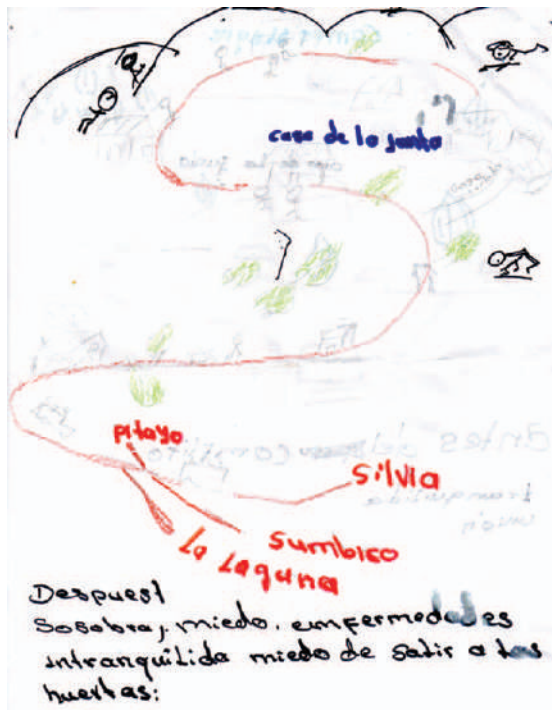 casa de lo junta
pitayo
Silvia
Sumbico
La Laguna
Despuest
Sosobra, miedo, emfermedades
intranquilida miedo de salir a las
huertas: